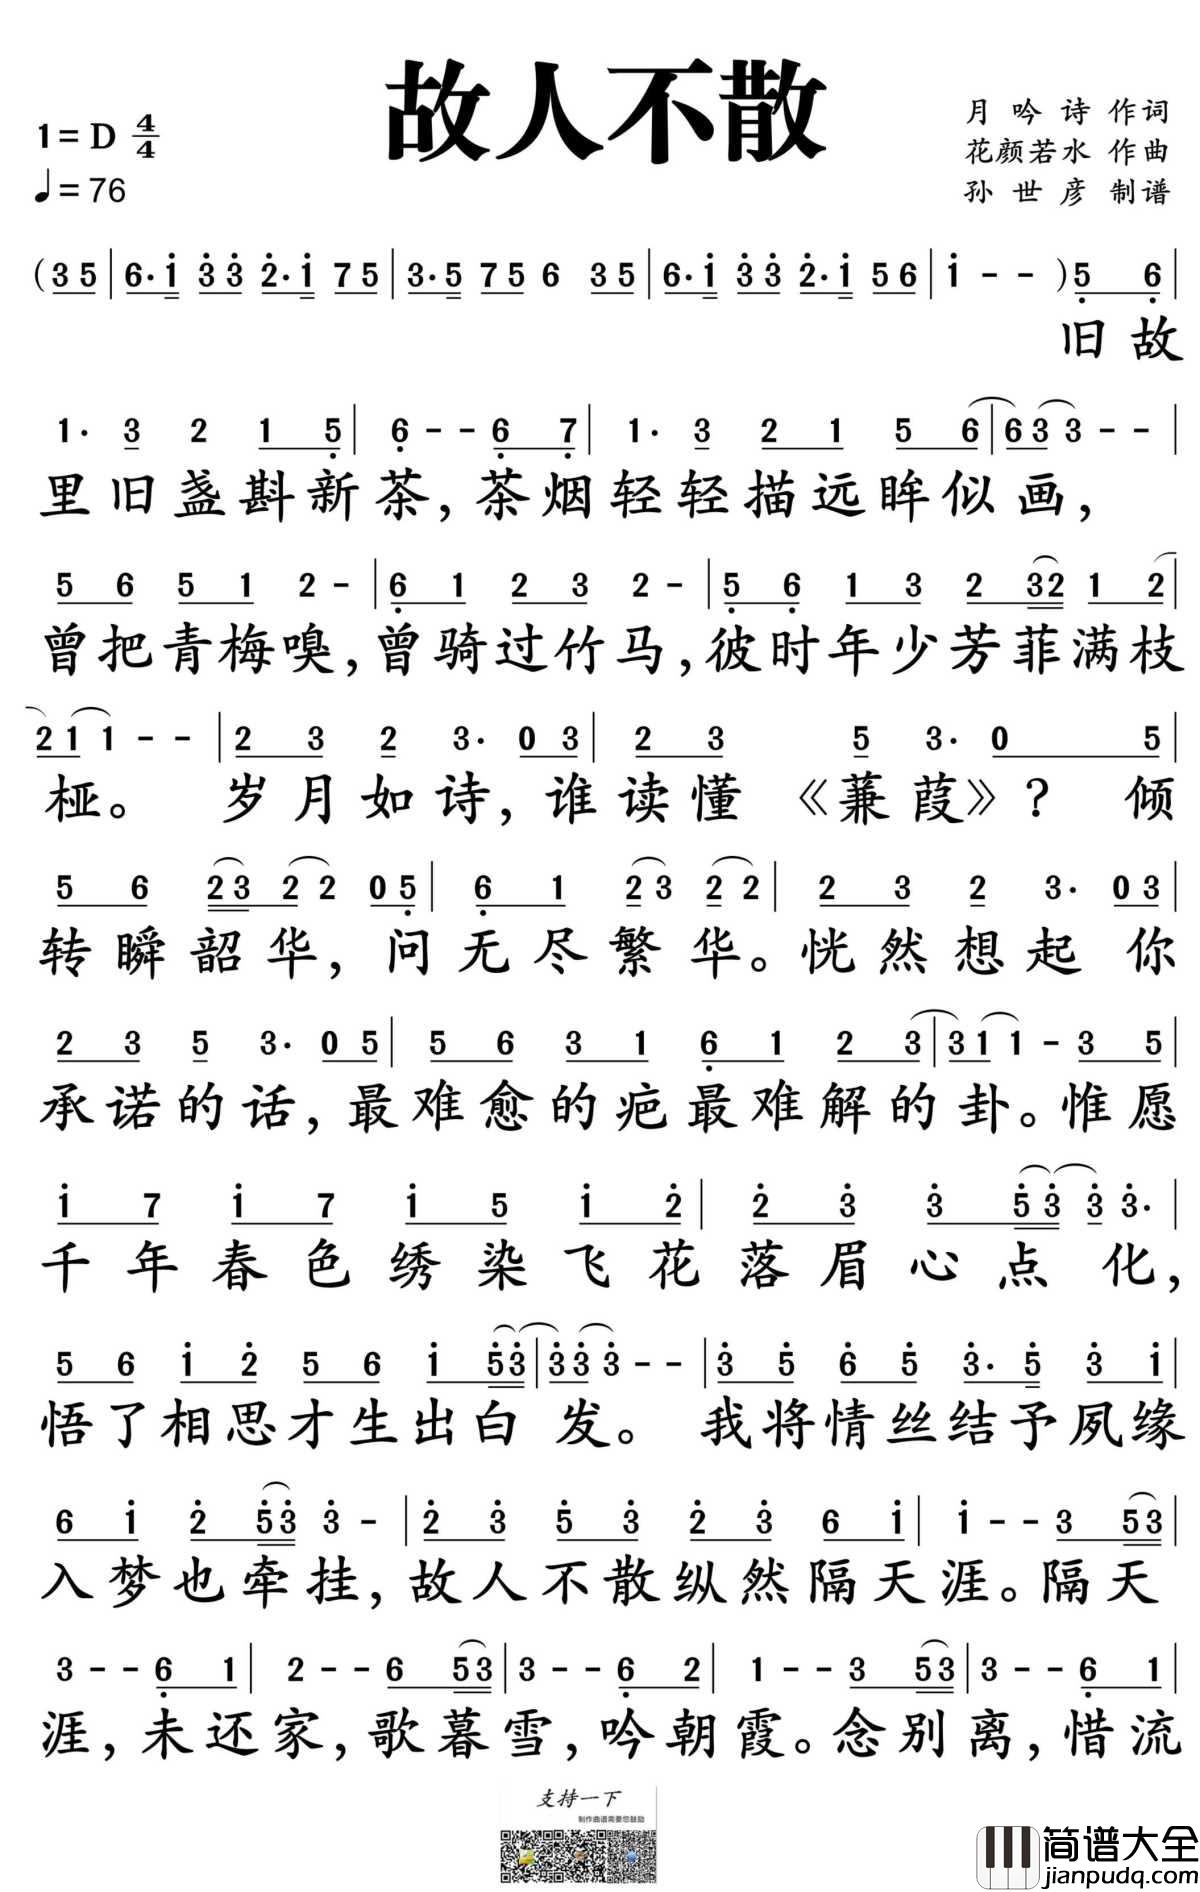 故人不散
1=D 4/4
♩=76
月吟诗 作词
花颜若水 作曲
孙世彦 制谱
(35|6·i̇ 3̇3̇ 2̇·i̇ 75|3·5 75 6 35|6·i̇ 3̇3̇ 2̇·i̇ 56|i̇ - - )5̣ 6̣|
旧故
1· 3 2 1 5̣|6̣ - - 6̣ 7̣|1· 3 2 1 5 6|63 3 - -|
里旧盏斟新茶，茶烟轻轻描远眸似画，
5 6 5 1 2 -|6̣ 1 2 3 2 -|5̣ 6̣ 1 3 2 32 1 2|
曾把青梅嗅，曾骑过竹马，彼时年少芳菲满枝
21 1 - -|2 3 2 3· 03|2 3 5 3· 0 5|
桠。岁月如诗，谁读懂《蒹葭》？倾
5 6 23 2 2 05̣|6̣ 1 2 3 2 2|2 3 2 3· 03|
转瞬韶华，问无尽繁华。恍然想起你
2 3 5 3· 05|5 6 3 1 6̣ 1 2 3|31 1 - 3 5|
承诺的话，最难愈的疤最难解的卦。惟愿
i̇ 7 i̇ 7 i̇ 5 i̇ 2̇|2̇ 3̇ 3̇ 5̇3̇ 3̇ 3̇·|
千年春色绣染飞花落眉心点化，
5 6 i̇ 2̇ 5 6 i̇ 5̇3̇|3̇3̇ 3̇ - -|3̇ 5̇ 6̇ 5̇ 3̇· 5̇ 3̇ i̇|
悟了相思才生出白发。我将情丝结予夙缘
6 i̇ 2̇ 5̇3̇ 3̇ -|2̇ 3̇ 5̇ 3̇ 2̇ 3̇ 6 i̇|i̇ - - 3 53|
入梦也牵挂，故人不散纵然隔天涯。隔天
3 - - 6̣ 1|2 - - 6 53|3 - - 6̣ 2|1 - - 3 53|3 - - 6̣ 1|
涯，未还家，歌暮雪，吟朝霞。念别离，惜流
支持一下
制作曲谱需要您鼓励
简谱大全
jianpudq.com